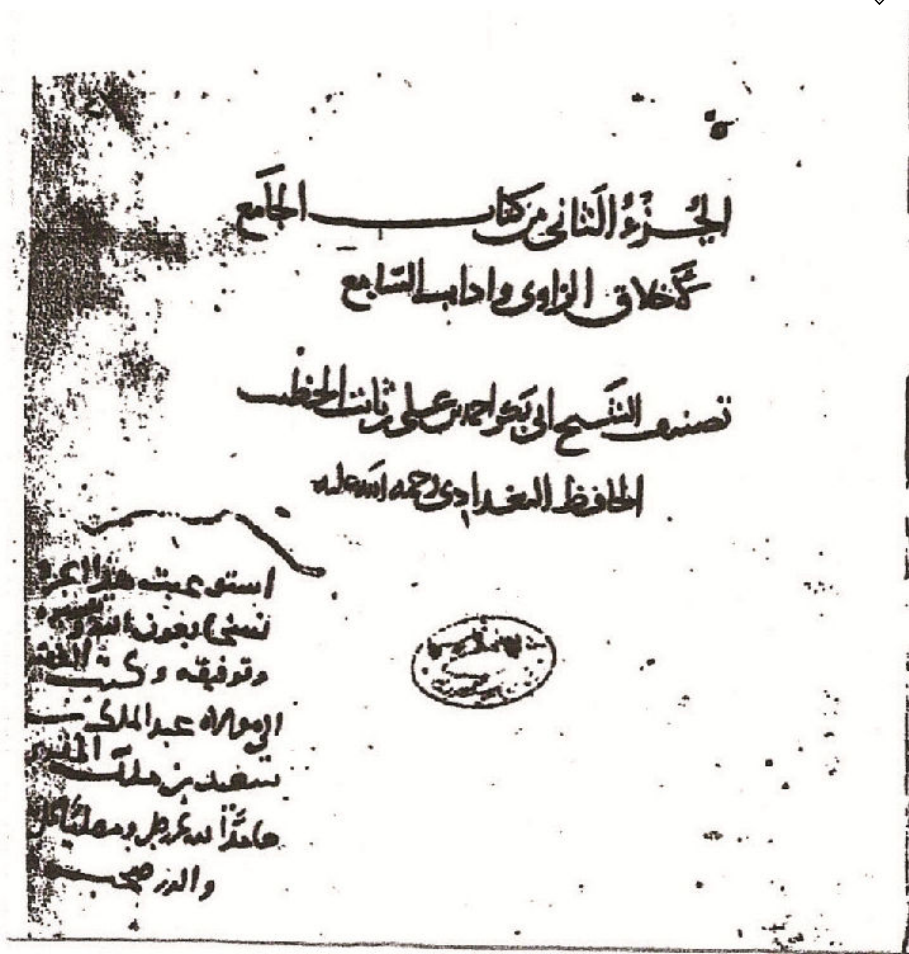 الجُزْءُ الثاني من كتاب الجامع
لأخلاق الراوى واداب السامع
تصنيف الشيخ ابى بكر احمد بن على بن ثابت الخطيب
الحافظ البغدادى رحمه الله عليه
استوعبت هذا الجزء
بعون الله
وتوفيقه وكتب الفقير
الى مولاه عبد الملك بن
سعيد بن
حامدًا لله عز وجل ومصليًا على
واله وصحبه